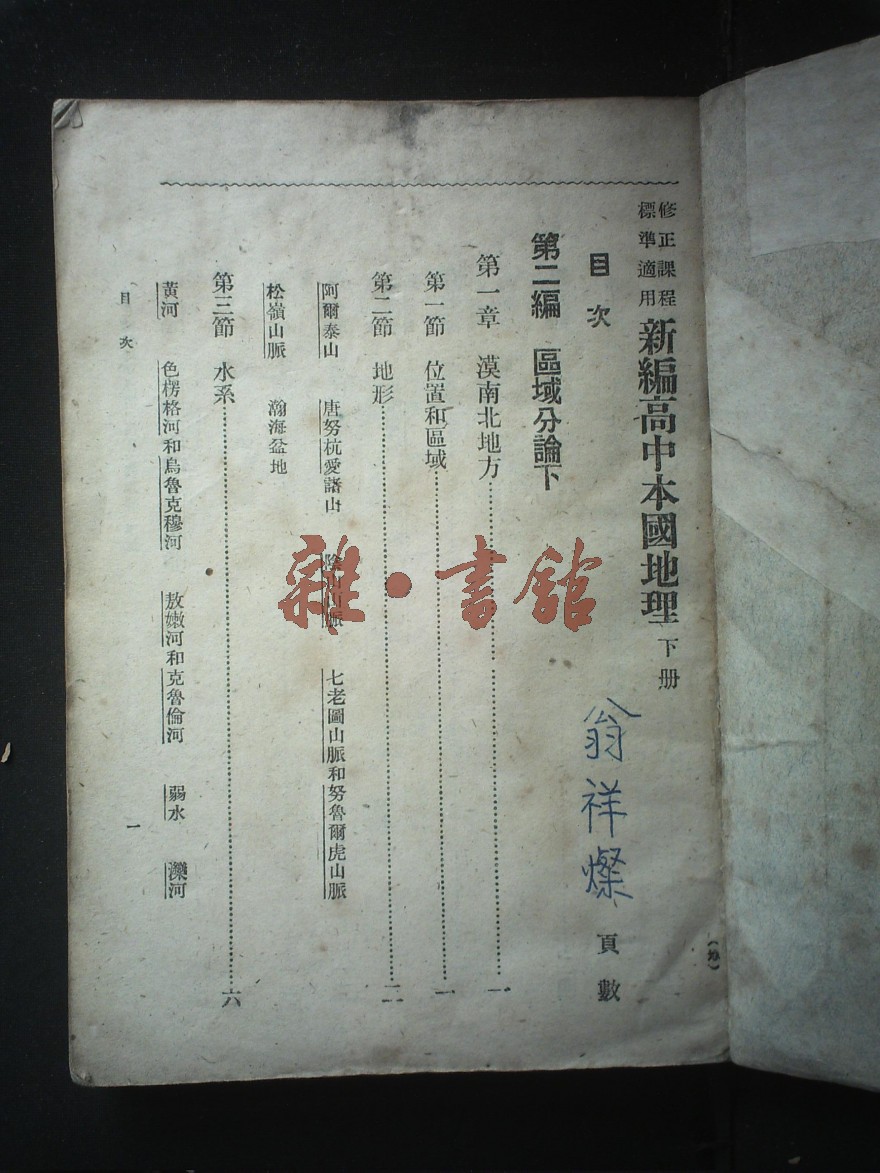 修正課程標準適用 新編高中本國地理 下册
目次
翁祥燦
頁數
第二編 區域分論下
第一章 漠南北地方……一
第一節 位置和區域……一
第二節 地形……二
阿爾泰山 唐努杭愛諸山 陰山山脈 七老圖山脈和努魯爾虎山脈
松嶺山脈 瀚海盆地
第三節 水系……六
黃河 色楞格河和烏魯克穆河 敖嫩河和克魯倫河 弱水 灤河
目次
一
雜·書館